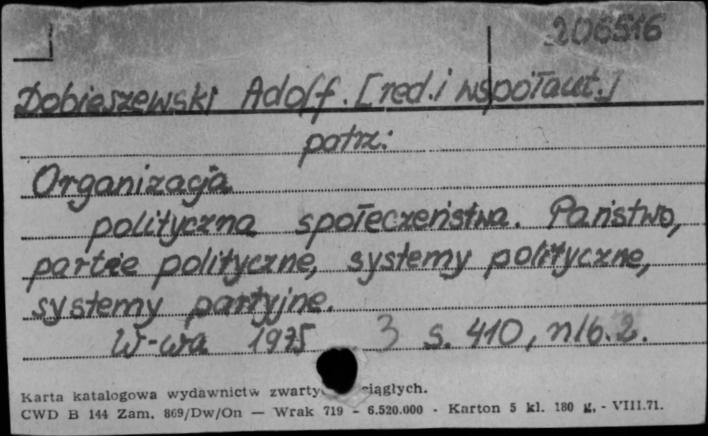 206516
Dobieszewski Adolf. [red. i współaut.]
patrz:
Organizacja
polityczna społeczeństwa. Państwo,
partie polityczne, systemy polityczne,
systemy partyjne.
W-wa 1975 3 s. 410, nlb. 2.
Karta katalogowa wydawnictw zwarty ciągłych.
CWD B 144 Zam. 869/Dw/On — Wrak 719 - 6.520.000 - Karton 5 kl. 180 g. - VIII.71.